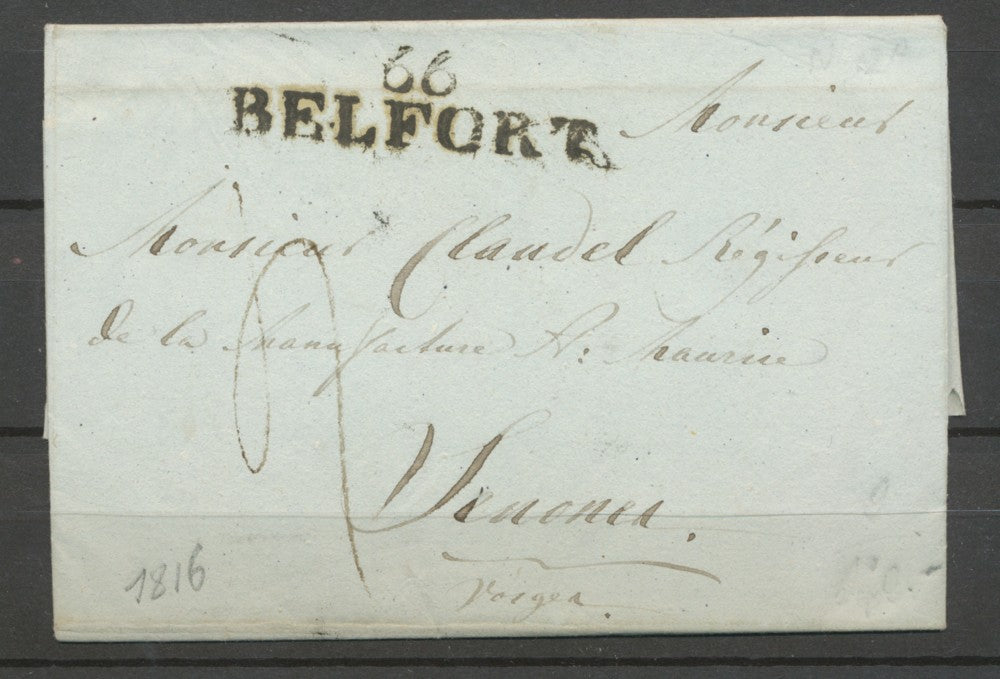 66
BELFORT
Monsieur
Monsieur Claudel Régisseur
de la manufacture St: Maurice
Senones.
Vosges
1816